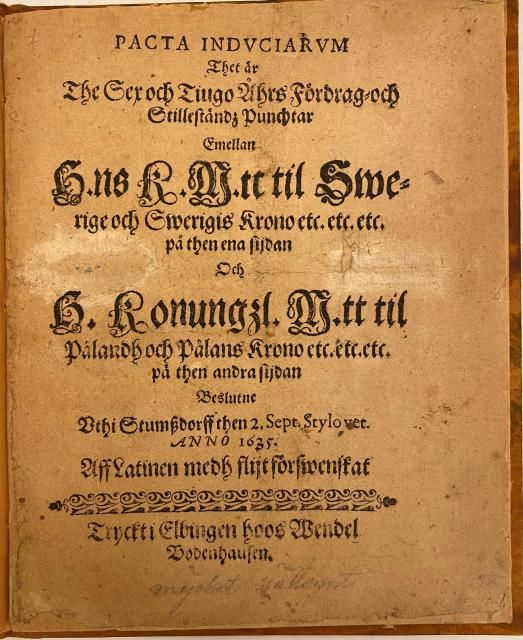 PACTA INDVCIARVM
Thet är
The Sex och Tiugo Åhrs Fördrag-och
Stilleståndz Punchtar
Emellan
H.ns K. M.tt til Swe-
rige och Swerigis Krono etc. etc. etc.
på then ena sijdan
Och
H. Konungzl. M.tt til
Pålandh och Pålans Krono etc. etc. etc.
på then andra sijdan
Beslutne
Vthi Stumßdorff then 2. Sept. Stylo vet.
ANNO 1635.
Aff Latinen medh flijt förswenskat
Tryckt i Elbingen hoos Wendel
Bodenhausen.
mycket sällsynt